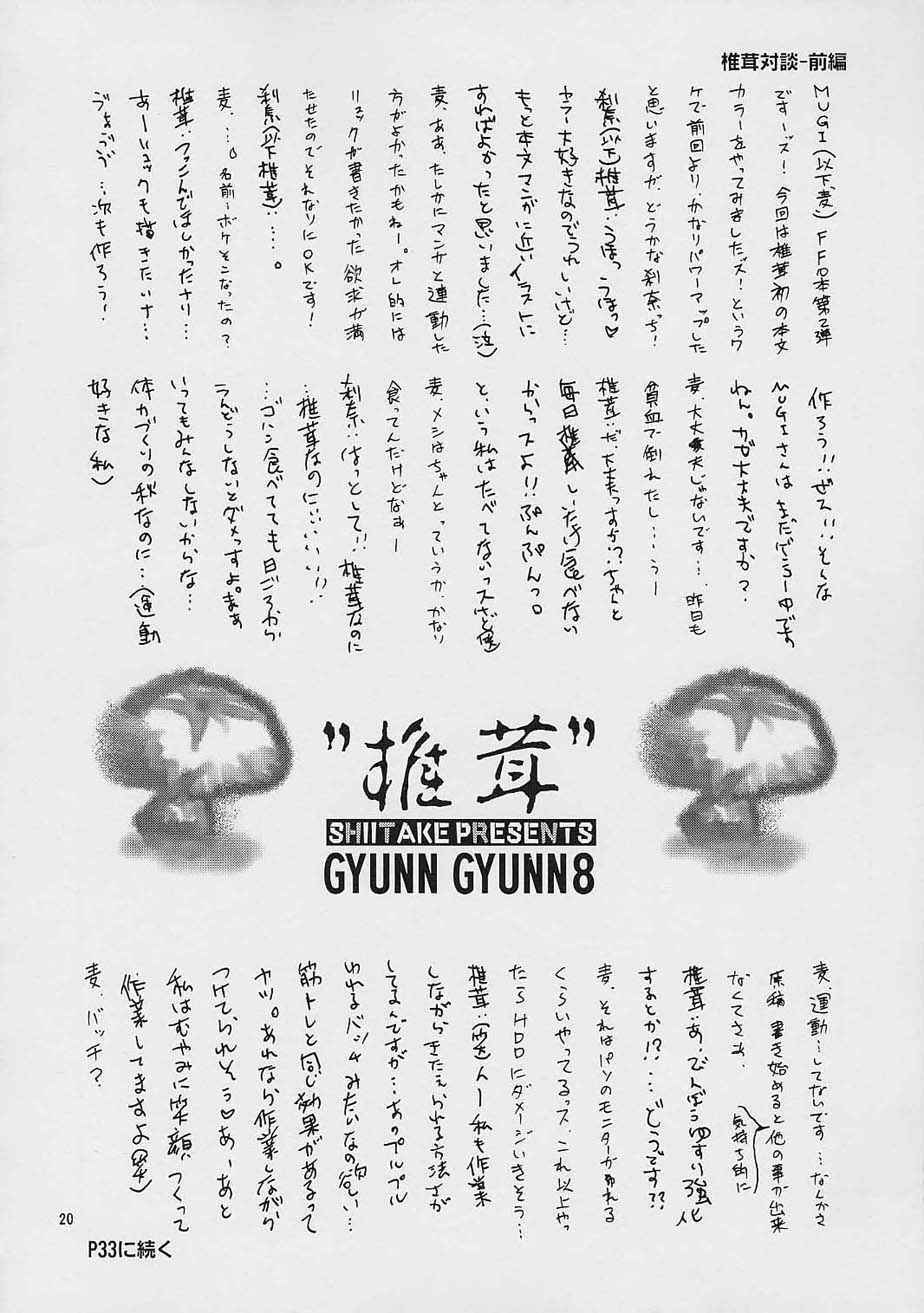 椎茸対談-前編
MUGI(以下麦)FF8本第2弾
ですーズ!今回は椎茸初の本文
カラーをやってみましたッズ!というワ
ケで前回よりかなりパワーマップした
と思いますがどうかな刹奈っち!
刹奈(以下)椎茸:うほっうほっ♡
カラー大好きなのでうれしいけど…
もっと本文マンガに近いイラストに
すればよかったと思いました…(泣)
麦、ああ、たしかにマンガと連動した
方がよかったかもねー。オレ的には
リュックが書きたかった欲求が満
たせたのでそれなりにOKです!
刹奈(以下椎茸):…。
麦、…。名前…ボケそこなったの?
椎茸:
あーリュックも描きたいナ…
次も作ろう!
作ろう!!ぜス!!そんな
MUGIさんはまだげ
ねん。カゼ大丈夫ですか?
麦、大丈夫じゃないです…、昨日も
貧血で倒れたし…うー
椎茸:だ、大丈夫っすか!?ちゃんと
毎日椎茸しいたけ食べない
からっスよ!!ぷんぷんっ。
という私はたべてないっスけど(笑)
麦、メシはちゃんとっていうか、かなり
食ってんだけどなぁー
刹奈:はっとして!!椎茸なのに
…椎茸なのにぃぃいい!!
…ゴハン食べてても日ごろから
うんどうしないとダメっすよ。まぁ
いってもみんなしないからな…
体力づくりの秋なのに…(運動
好きな私)
"椎茸"
SHIITAKE PRESENTS
GYUNN GYUNN8
麦、運動…してないです…なんかさ
原稿書き始めると他の事が出来
なくてさぁ
気持ち的に
椎茸:あ、でんぐうゆすり強化
するとか!?…どうっです??
麦、それはパソのモニターがゆれる
くらいやってるっス、これ以上やっ
たらHDDにダメージいきそう…
椎茸:(笑)んー私も作業
しながらきたえられる方法さが
してるんですが…あのプルプル
ゆれるバンドみたいなの欲しい…
筋トレと同じ効果があるって
ヤツ。あれなら作業しながら
つけてられそう♡あーあと
私はむやみに笑顔つくって
作業してますよ(笑)
麦、バッチ?
20
P33に続く